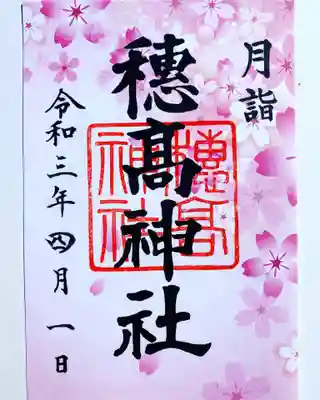 月詣
穂髙神社
穂高
神社
令和三年四月一日